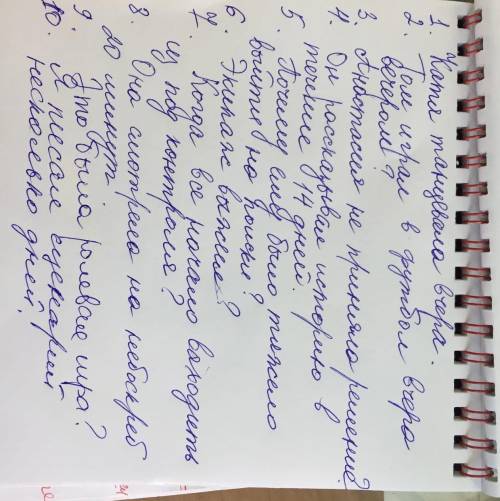 1. Катя танцевала вчера.
2. Том играл в футбол вчера
вечером?
3. Анастасия не приняла решение.
4. Он рассказывал историю в
течение 14 дней.
5. Почему ему было тяжело
выйти на поиски?
6. Экипаж выжил?
7. Когда все начало выходить
из под контроля?
8. Она смотрела на небоскреб
20 минут
9. Это была ролевая игра?
10. Я писала сценарий
несколько дней.